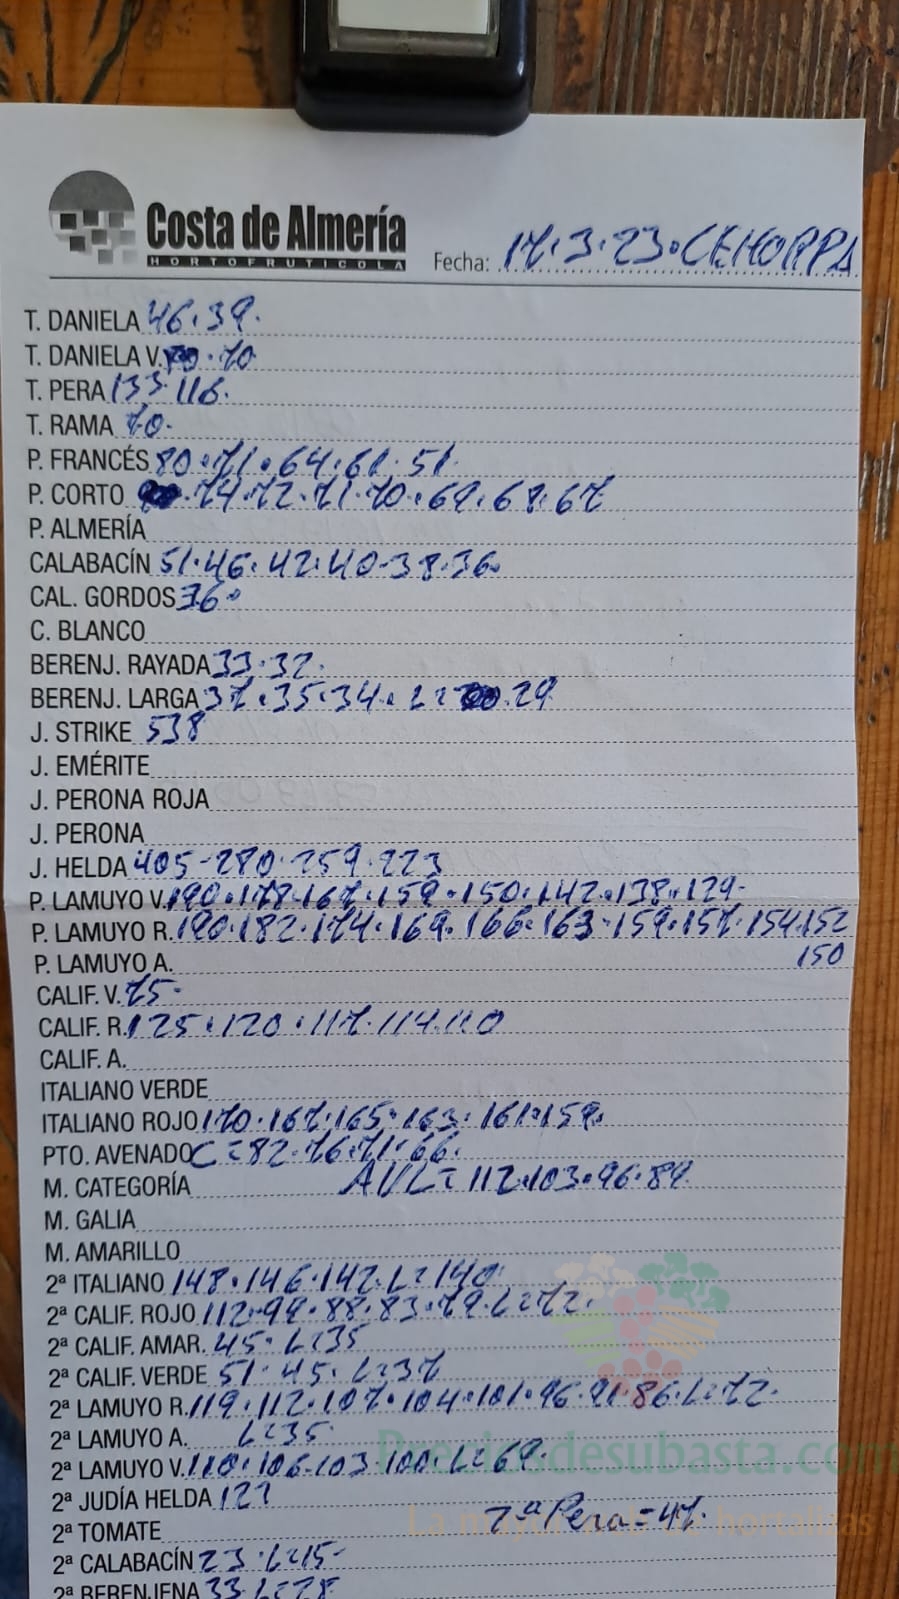 Costa de Almería
HORTOFRUTICOLA
Fecha: 17.3.23. CEHORPA
T. DANIELA 46. 39.
T. DANIELA V. 70
T. PERA 133 116.
T. RAMA 70.
P. FRANCÉS 80. 71. 64. 61. 51.
P. CORTO 74. 72. 71. 70. 69. 68. 67
P. ALMERÍA
CALABACÍN 51. 46. 42. 40-38. 36.
CAL. GORDOS 36.
C. BLANCO
BERENJ. RAYADA 33. 32.
BERENJ. LARGA 37. 35. 34. L= 29
J. STRIKE 538
J. EMÉRITE
J. PERONA ROJA
J. PERONA
J. HELDA 405-280. 259. 223
P. LAMUYO V. 190. 178. 167. 159. 150. 142. 138. 129-
P. LAMUYO R. 190. 182. 174. 169. 166. 163. 159. 157. 154. 152
150
P. LAMUYO A.
CALIF. V. 75-
CALIF. R. 125. 120. 117. 114. 110
CALIF. A.
ITALIANO VERDE
ITALIANO ROJO 170. 167. 165. 163. 161. 159.
PTO. AVENADO C=82. 76. 71. 66.
M. CATEGORÍA AVL= 112. 103. 96. 89.
M. GALIA
M. AMARILLO
2ª ITALIANO 148. 146. 142. L=140
2ª CALIF. ROJO 112. 99. 88. 83. 79. L=72.
2ª CALIF. AMAR. 45. L=35
2ª CALIF. VERDE 51. 45. L=37
2ª LAMUYO R. 119. 112. 107. 104. 101. 96. 91. 86. L=72.
2ª LAMUYO A. L=35.
2ª LAMUYO V. 110. 106. 103 100. L=69
Preciosdesubasta.com
2ª JUDÍA HELDA 127
2ª TOMATE 2ª Pera=47.
La hortalizas
2ª CALABACÍN 23. L=15-
2ª BERENJENA 33. L=28